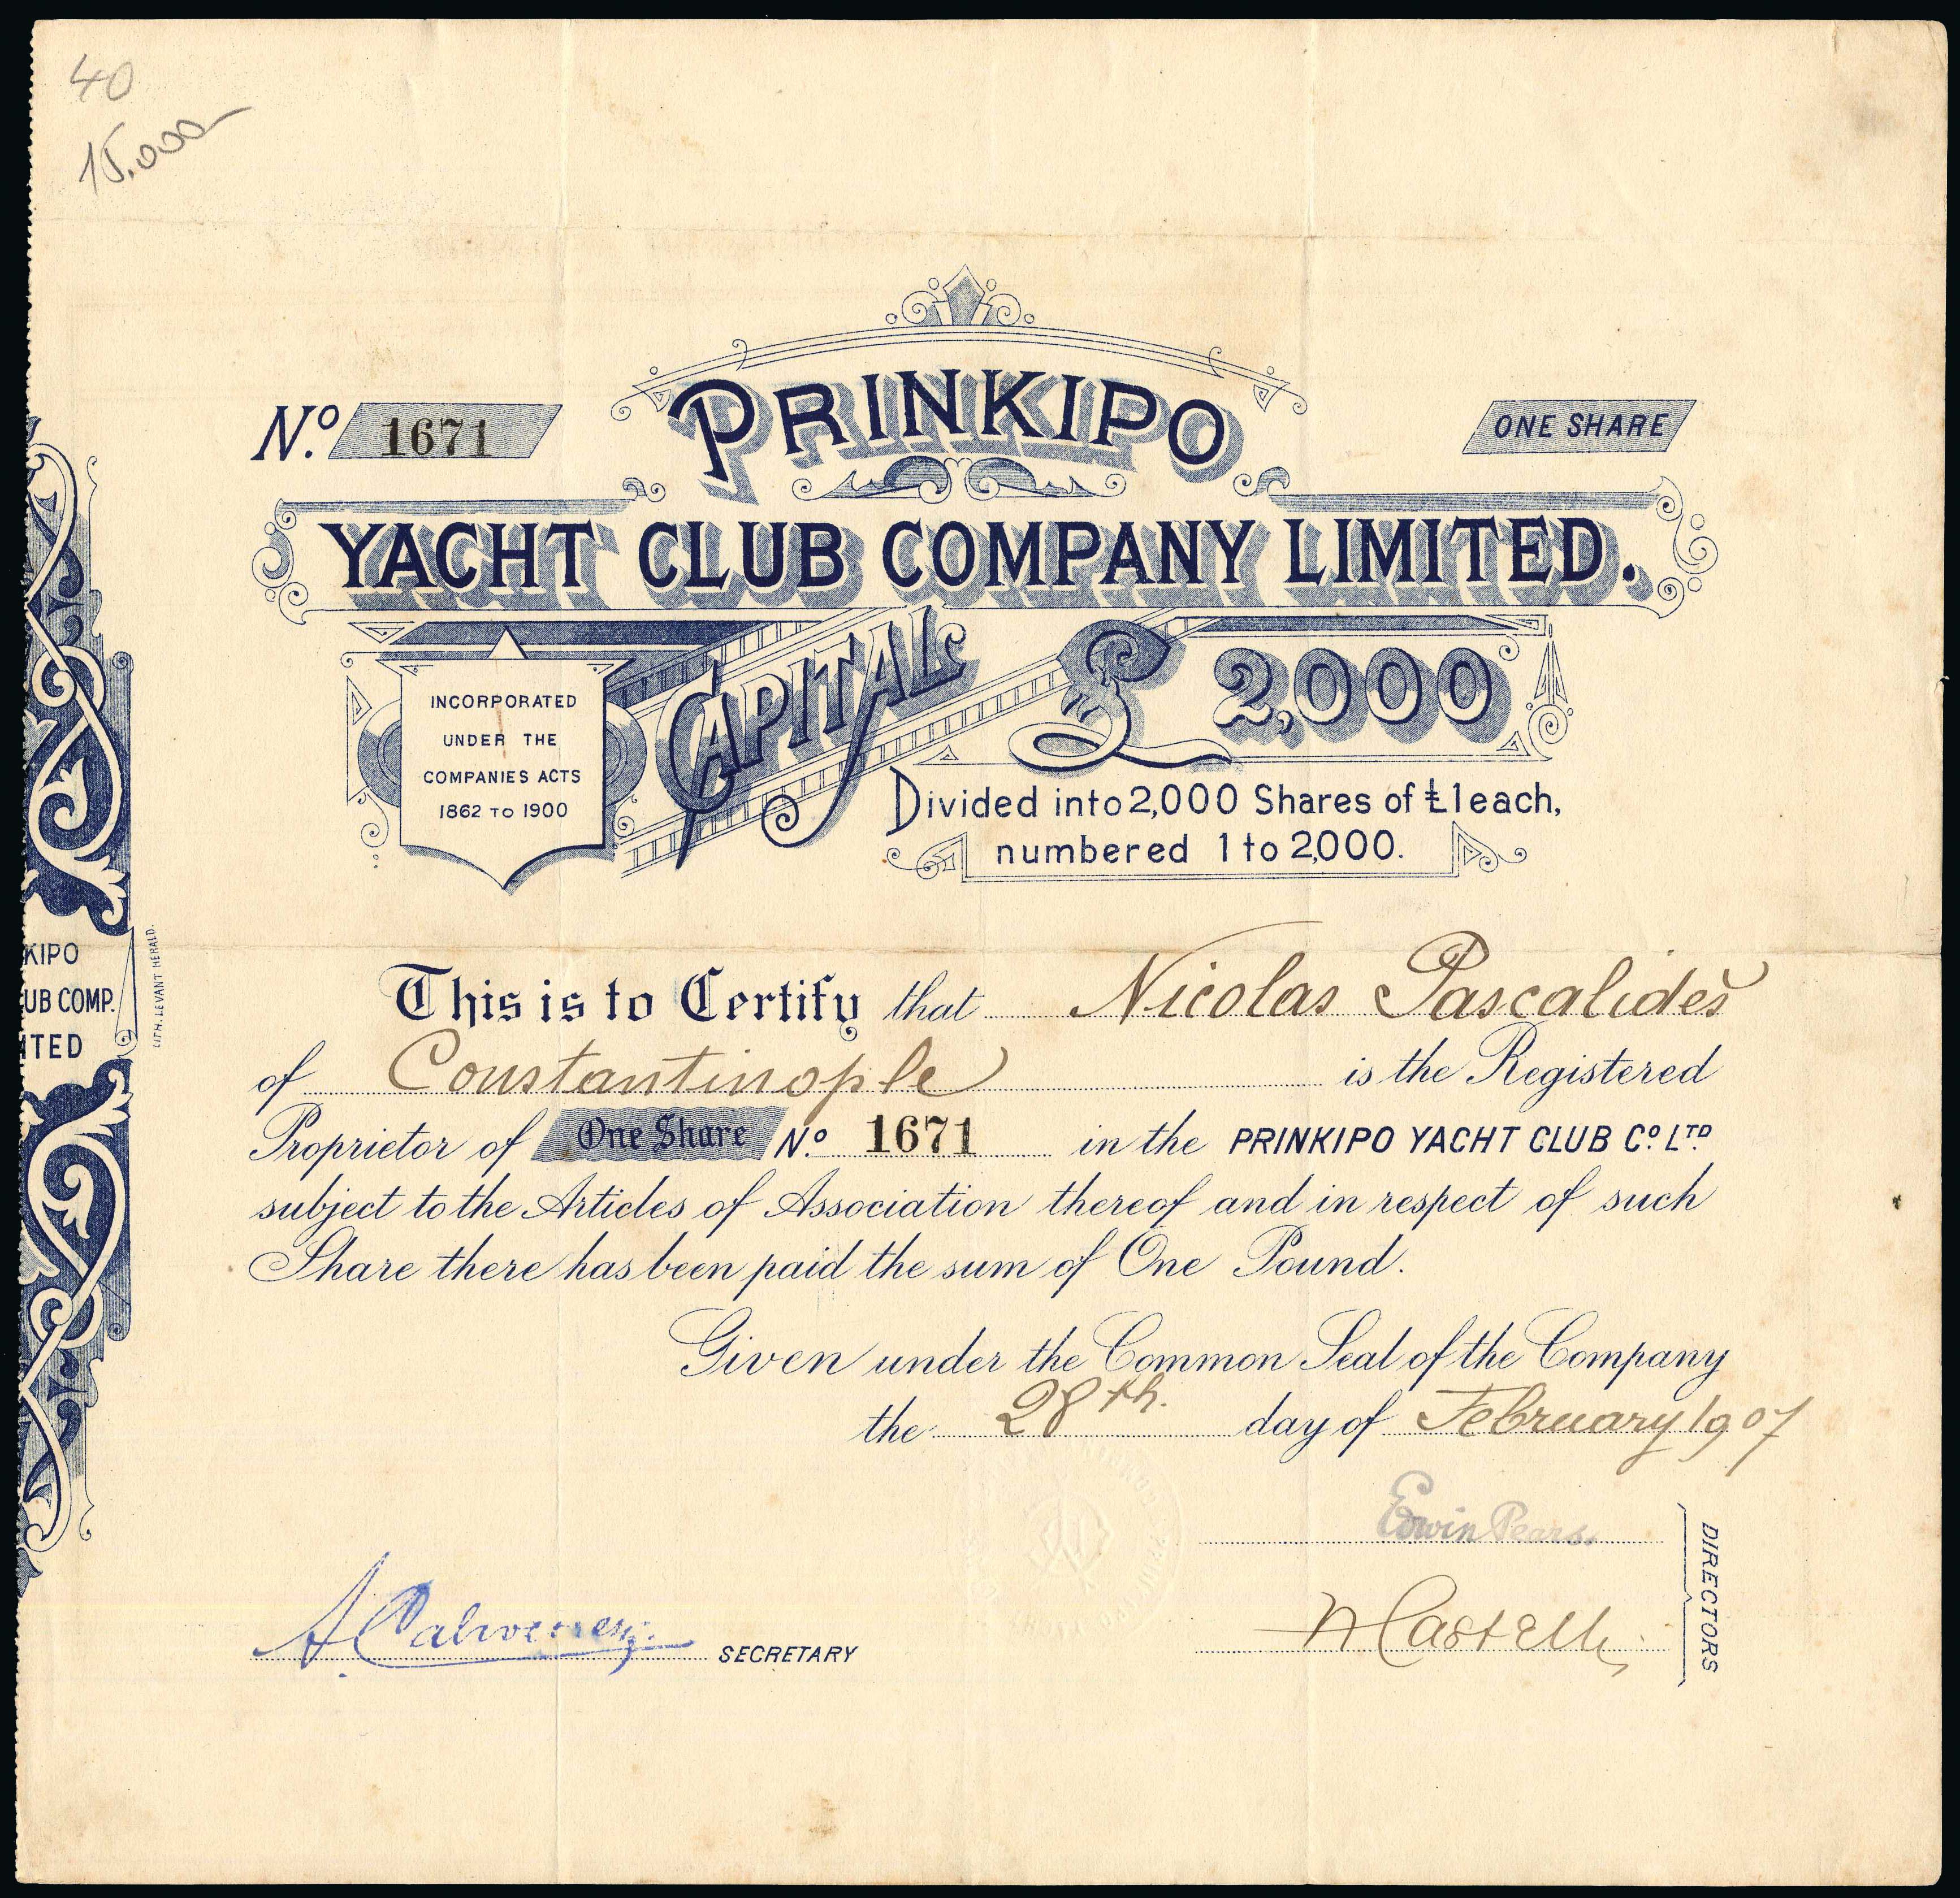 40
15.000
PRINKIPO
Nº 1671
ONE SHARE
YACHT CLUB COMPANY LIMITED.
CAPITAL £ 2,000
INCORPORATED
UNDER THE
COMPANIES ACTS
1862 TO 1900
Divided into 2,000 Shares of £1 each,
numbered 1 to 2,000.
KIPO
UB COMP.
ITED
LITH. LEVANT HERALD.
This is to Certify that Nicolas Pascalidès
of Constantinople is the Registered
Proprietor of One Share Nº 1671 in the PRINKIPO YACHT CLUB Cº LTD
subject to the Articles of Association thereof and in respect of such
Share there has been paid the sum of One Pound.
Given under the Common Seal of the Company
the 28th. day of February 1907
Edwin Pears.
Castelli
DIRECTORS
SECRETARY